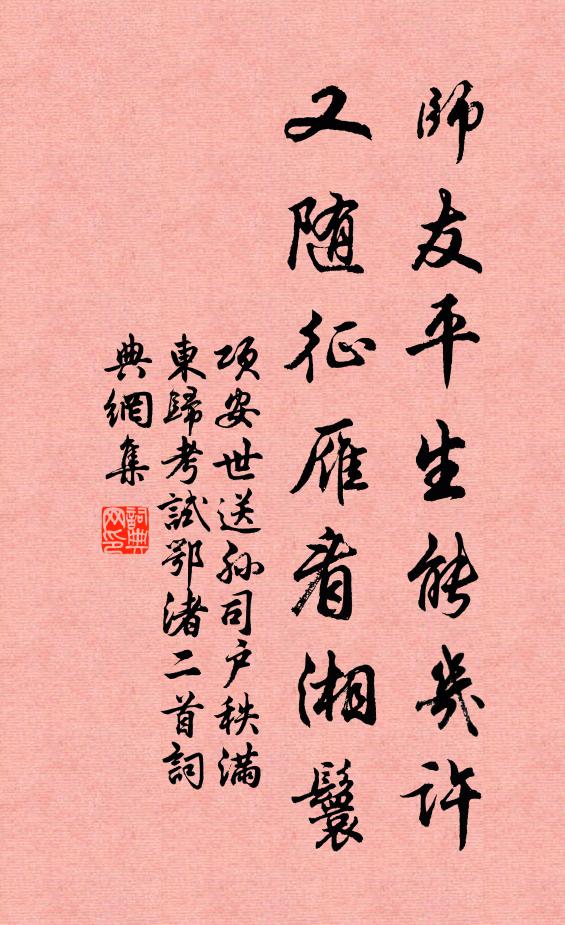 師友平生能幾許
又随征雁看湘鬟
項安世送孙司户秩滿
東歸考試鄂渚二首詞
典網集
詞典网印